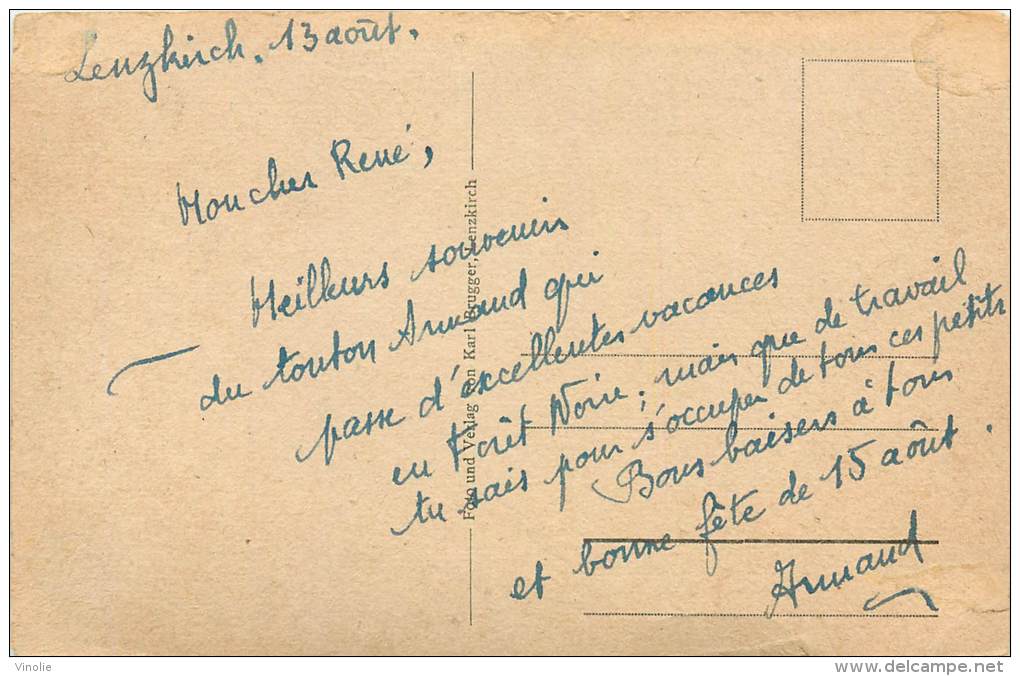 Lenzkirch. 13 août.
Moncher René,
Meilleurs souvenirs
du tonton Armand qui
passe d'excellentes vacances
en Forêt Noire; mais que de travail
tu sais pour s'occuper de tous ces petits
Bons baisers à tous
et bonne fête de 15 août.
Armand
Foto und Verlag von Karl Brugger, Lenzkirch
Vinolie
www.delcampe.net